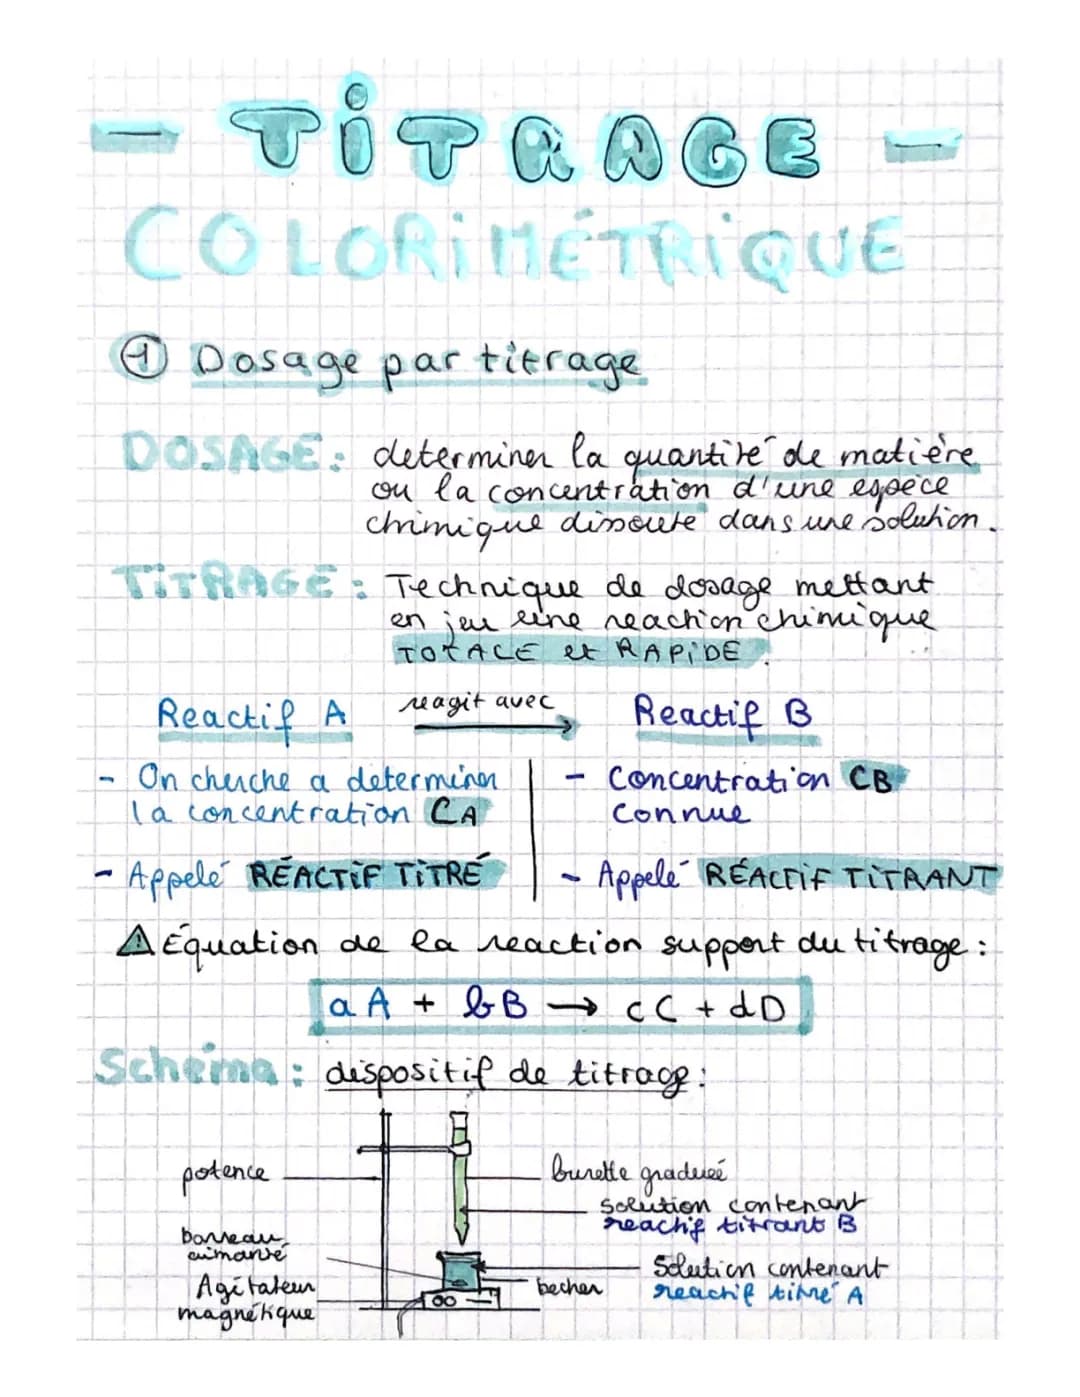 - TiTRAGE -
COLORiMÉTRiQUE
① Dosage par titrage
DOSAGE : determiner la quantité de matière
ou la concentration d'une espèce
chimique dissoute dans une solution.
TiTRAGE : Technique de dosage mettant
en jeu une reaction chimique
TOTALE et RAPiDE.
Reactif A reagit avec Reactif B
- On cherche a determiner
la concentration CA
- Concentration CB
connue
- Appelé RÉACTiF TiTRÉ
- Appelé RÉACTiF TiTRANT
⚠ Équation de la reaction support du titrage :
aA + bB → cC + dD
Schéma : dispositif de titrage :
potence
burette graduée
solution contenant
reactif titrant B
barreau
aimanté
Solution contenant
reactif titré A
becher
Agitateur
magnétique